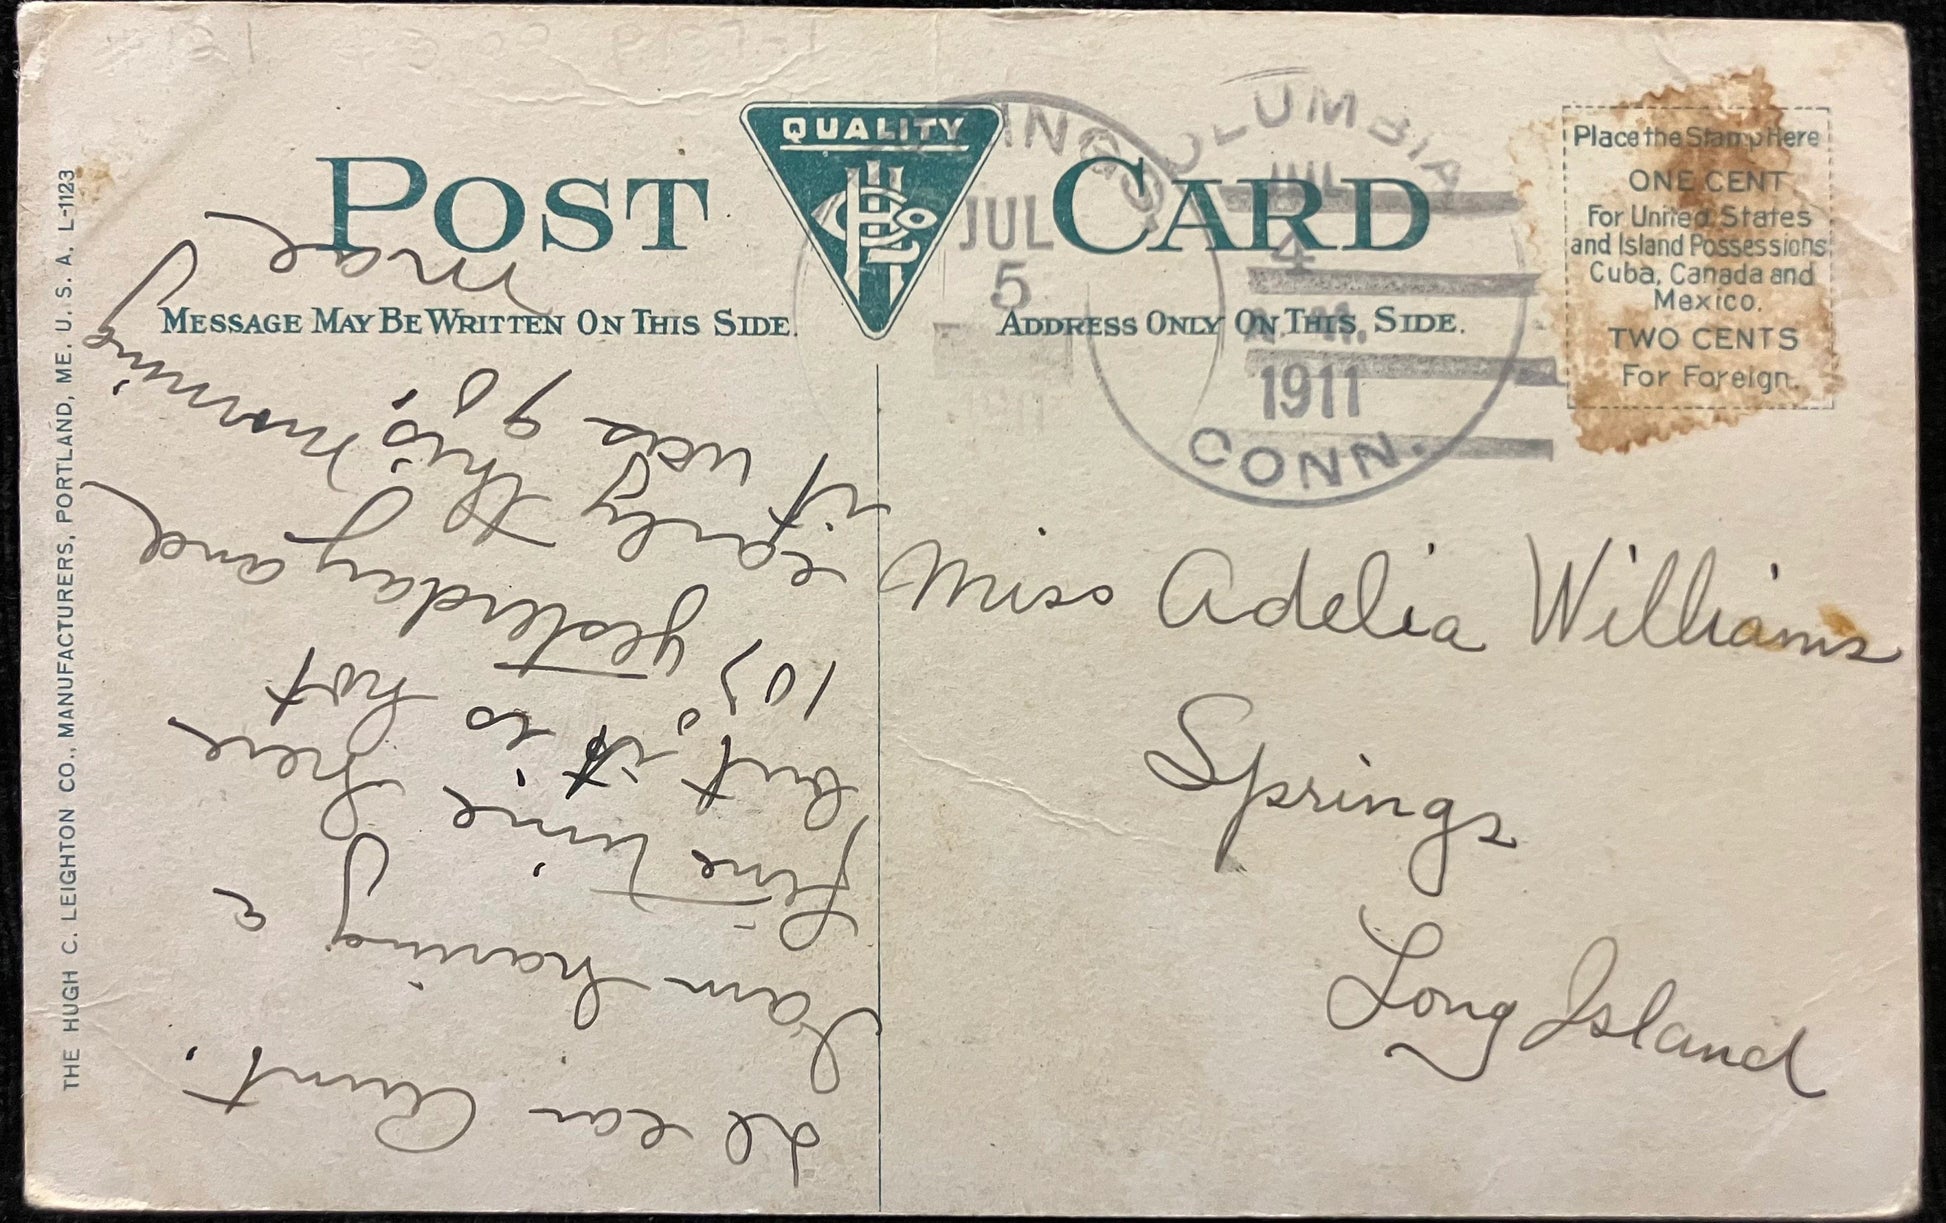 POST CARD
QUALITY
MESSAGE MAY BE WRITTEN ON THIS SIDE.
ADDRESS ONLY ON THIS SIDE.
Place the Stamp Here
ONE CENT
For United States
and Island Possessions
Cuba, Canada and
Mexico.
TWO CENTS
For Foreign.
COLUMBIA
JUL
4
M.
1911
CONN.
INGS
JUL
5
THE HUGH C. LEIGHTON CO., MANUFACTURERS, PORTLAND, ME. U. S. A. L-1123
Dear Aunt.
I am having a
fine time here
but, it is hot
103° yesterday and
early this morning
it was 90.
Mae
Miss Adelia Williams
Springs
Long Island